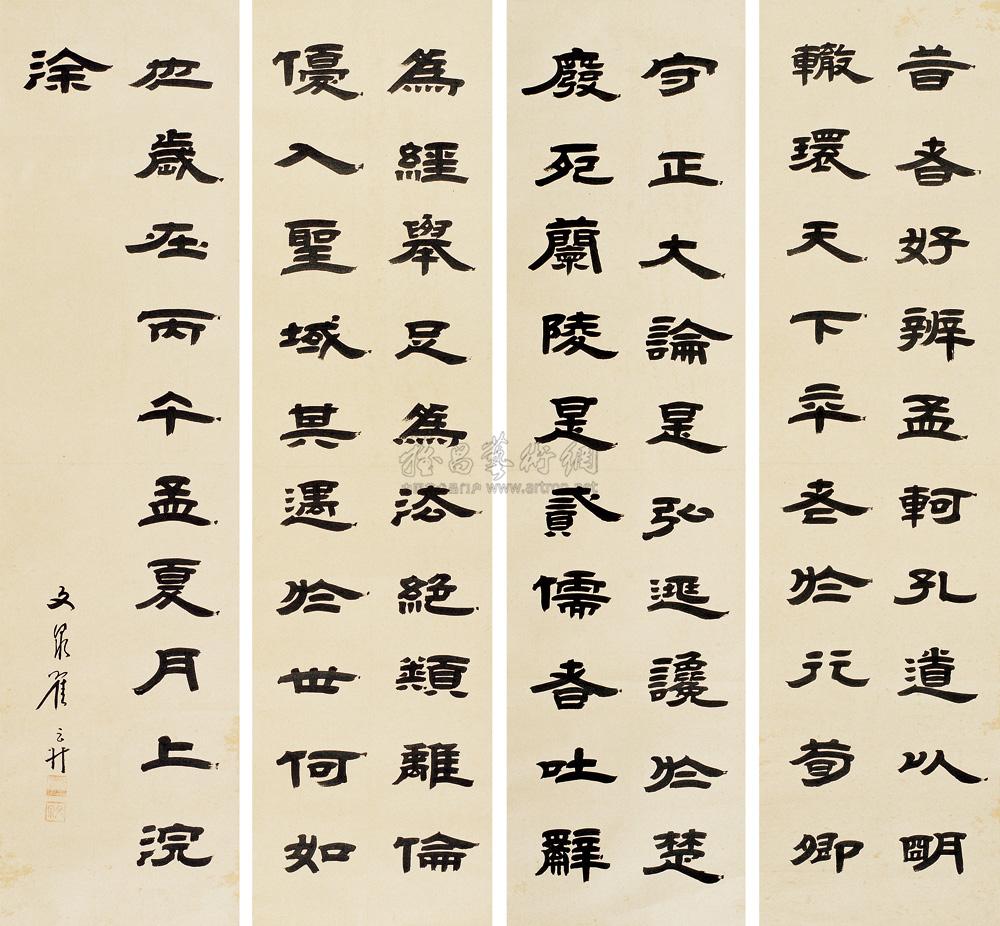 昔者好辨孟軻孔道以明
轍環天下卒老於行荀卿
守正大論是弘逃讒於楚
廢死蘭陵是貳儒者吐辭
爲經舉足爲法絕類離倫
優入聖域其遇於世何如
也歲在丙午孟夏月上浣
涂
文泉翟云升
雅昌藝術網
www.artron.net